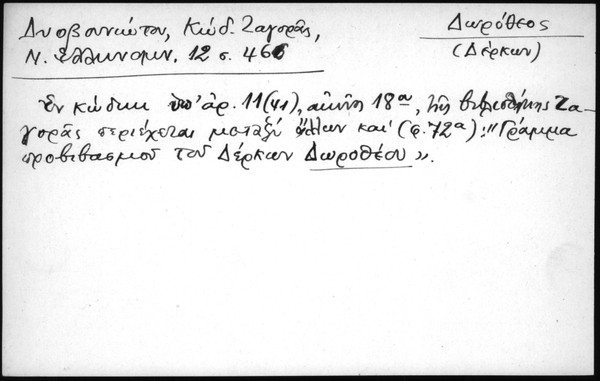 Δυοβουνιώτου, Κώδ. Ζαγορᾶς,
Ν. Ἑλληνομν. 12 σ. 466
Δωρόθεος
(Δέρκων)
Ἐν κώδικι ὑπ' ἀρ. 11 (41), αἰῶνος 18ου, τῆς βιβλιοθήκης Ζα-
γορᾶς περιέχεται μεταξὺ ἄλλων καὶ (φ. 72α): "Γράμμα
προβιβασμοῦ τοῦ Δέρκων Δωροθέου».